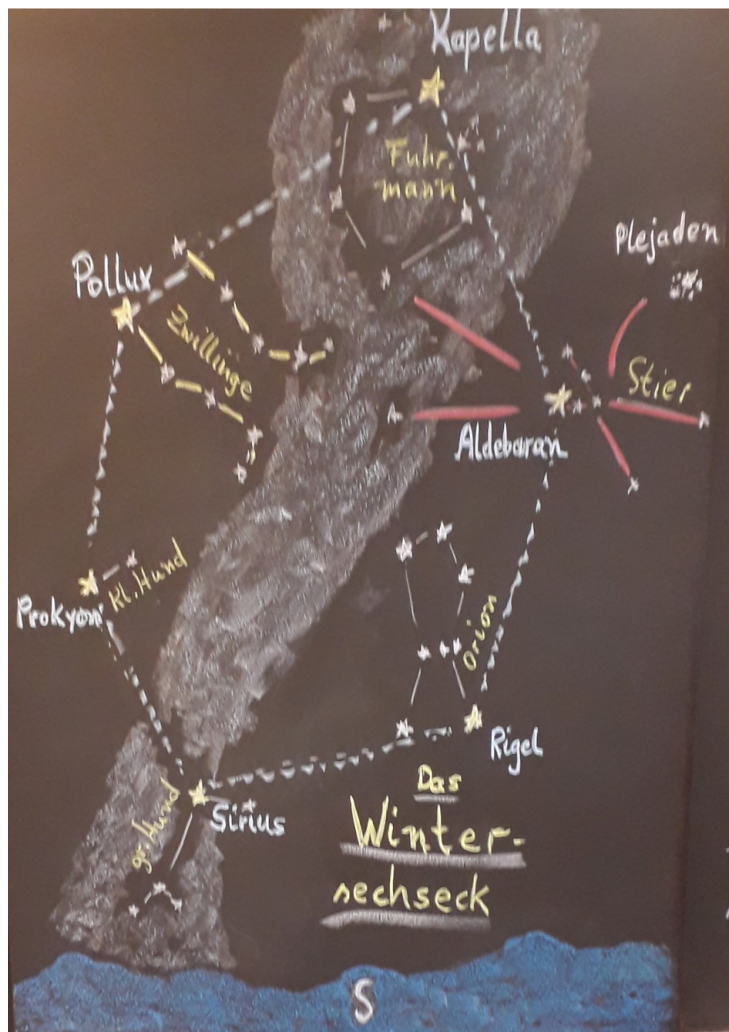 Kapella
Fuhr-
mann
Plejaden
Pollux
Zwillinge
Stier
Aldebaran
Kl. Hund
Prokyon
Orion
Rigel
gr. Hund
Sirius
Das
Winter-
sechseck
S